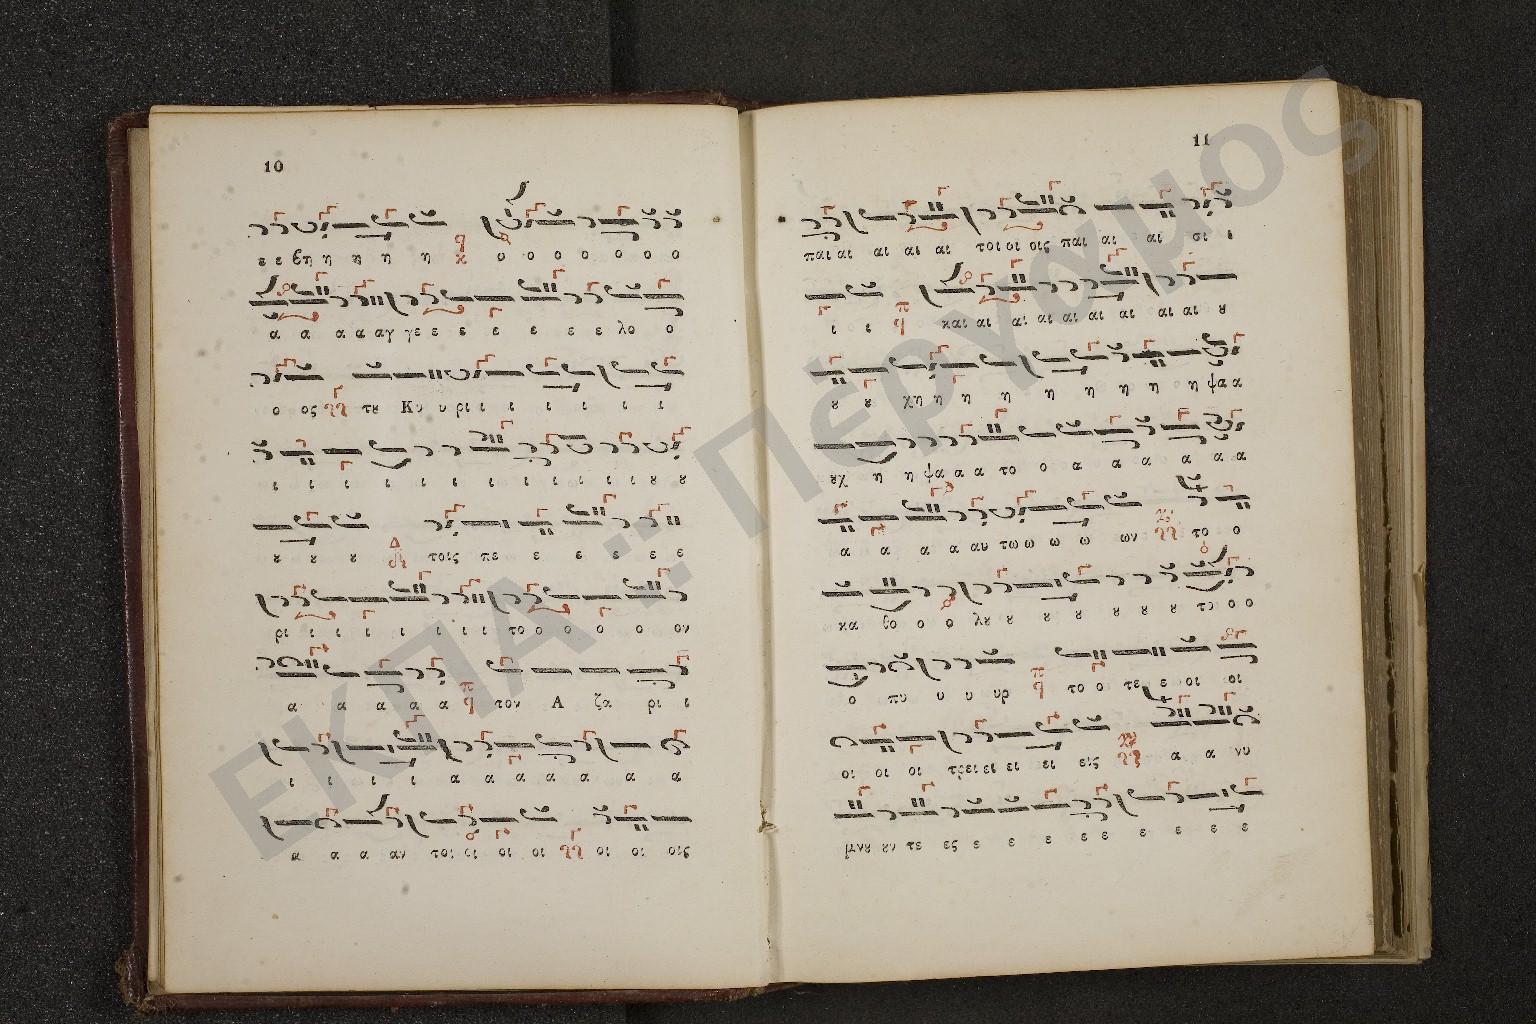 10
ε ε βη η η η η ο ο ο ο ο ο ο
α α α α αγ γε ε ε ε ε ε ε λο ο
ο ος τȣ Κυ υ ρι ι ι ι ι ι ι
ι ι ι ι ι ι ι ι ι ι ι ȣ ȣ
ȣ ȣ ȣ Δ τοις πε ε ε ε ε ε ε
ρι ι ι ι ι ι ι ι το ο ο ο ο ον
α α α α α π τον Α ζα ρι ι
ι ι ι ι α α α α α α α α
α α α αν τοι οι οι οι οι οι οις
11
παι αι αι αι αι τοι οι οις παι αι αι αι σι ι
ι ι π και αι αι αι αι αι αι αι αι ȣ
ȣ ȣ χη η η η η η η η ψα α
ȣχ η η ψα α α το ο α α α α α α
α α α α αυ τω ω ω ω ων το ο
κα βο ο ο λȣ ȣ ȣ ȣ ȣ ȣ ȣ το ο ο
ο πυ υ υ υρ π το ο τε ε οι οι
οι οι οι τρει ει ει ει εις α α νυ
μνȣ ȣν τε ες ε ε ε ε ε ε ε ε ε
ΕΚΠΑ :: Πέργαμος